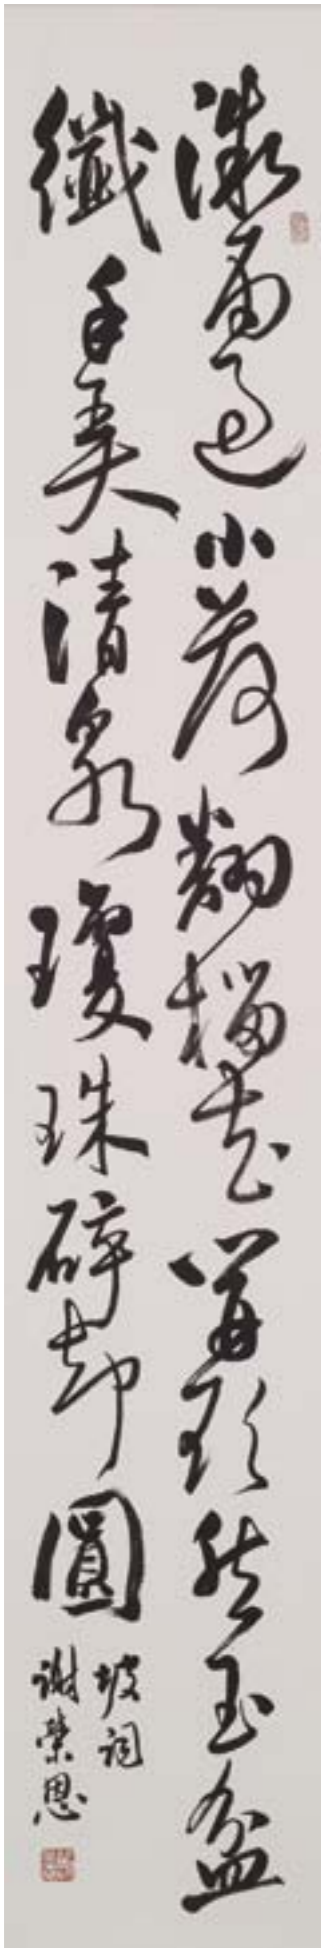 微雨過小荷翻榴花開欲然玉盆
纖手弄清泉瓊珠碎却圓
坡詞
謝榮恩